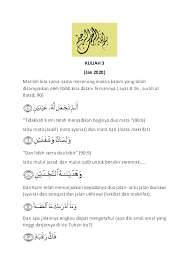 بسم الله الرحمن الرحيم
KULIAH 3
(Jan 2020)
Marilah kita sama-sama merenung makna kalam yang telah
disampaikan oleh Rabb kita dalam firmannya ( ayat 8-16, surah al
Balad, 90)
أَلَمْ نَجْعَل لَّهُ عَيْنَيْنِ
"Tidakkah Kami telah menjadikan baginya dua mata "(90:8)
iaitu mata jasad ( mata syariat) dan mata hati (mata makrifat)
وَلِسَانًا وَشَفَتَيْنِ
"Dan lidah serta dua bibir" (90:9)
iaitu mulut jasad dan mulut qalb untuk berzikir sreemak,....
وَهَدَيْنَاهُ النَّجْدَيْنِ
Dan Kami telah menunjukkan kepadanya dua jalan- iaitu jalan duniawi
(syariat dan sebagai) dan jalan ukhrawi (hakikat dan makrifat).
وَمَا أَدْرَاكَ مَا الْعَقَبَةُ
Dan apa jalannya engkau dapat mengetahui (apa dia amal-amal yang
tinggi darjatnya di sisi Tuhan itu?
فَكُّ رَقَبَةٍ